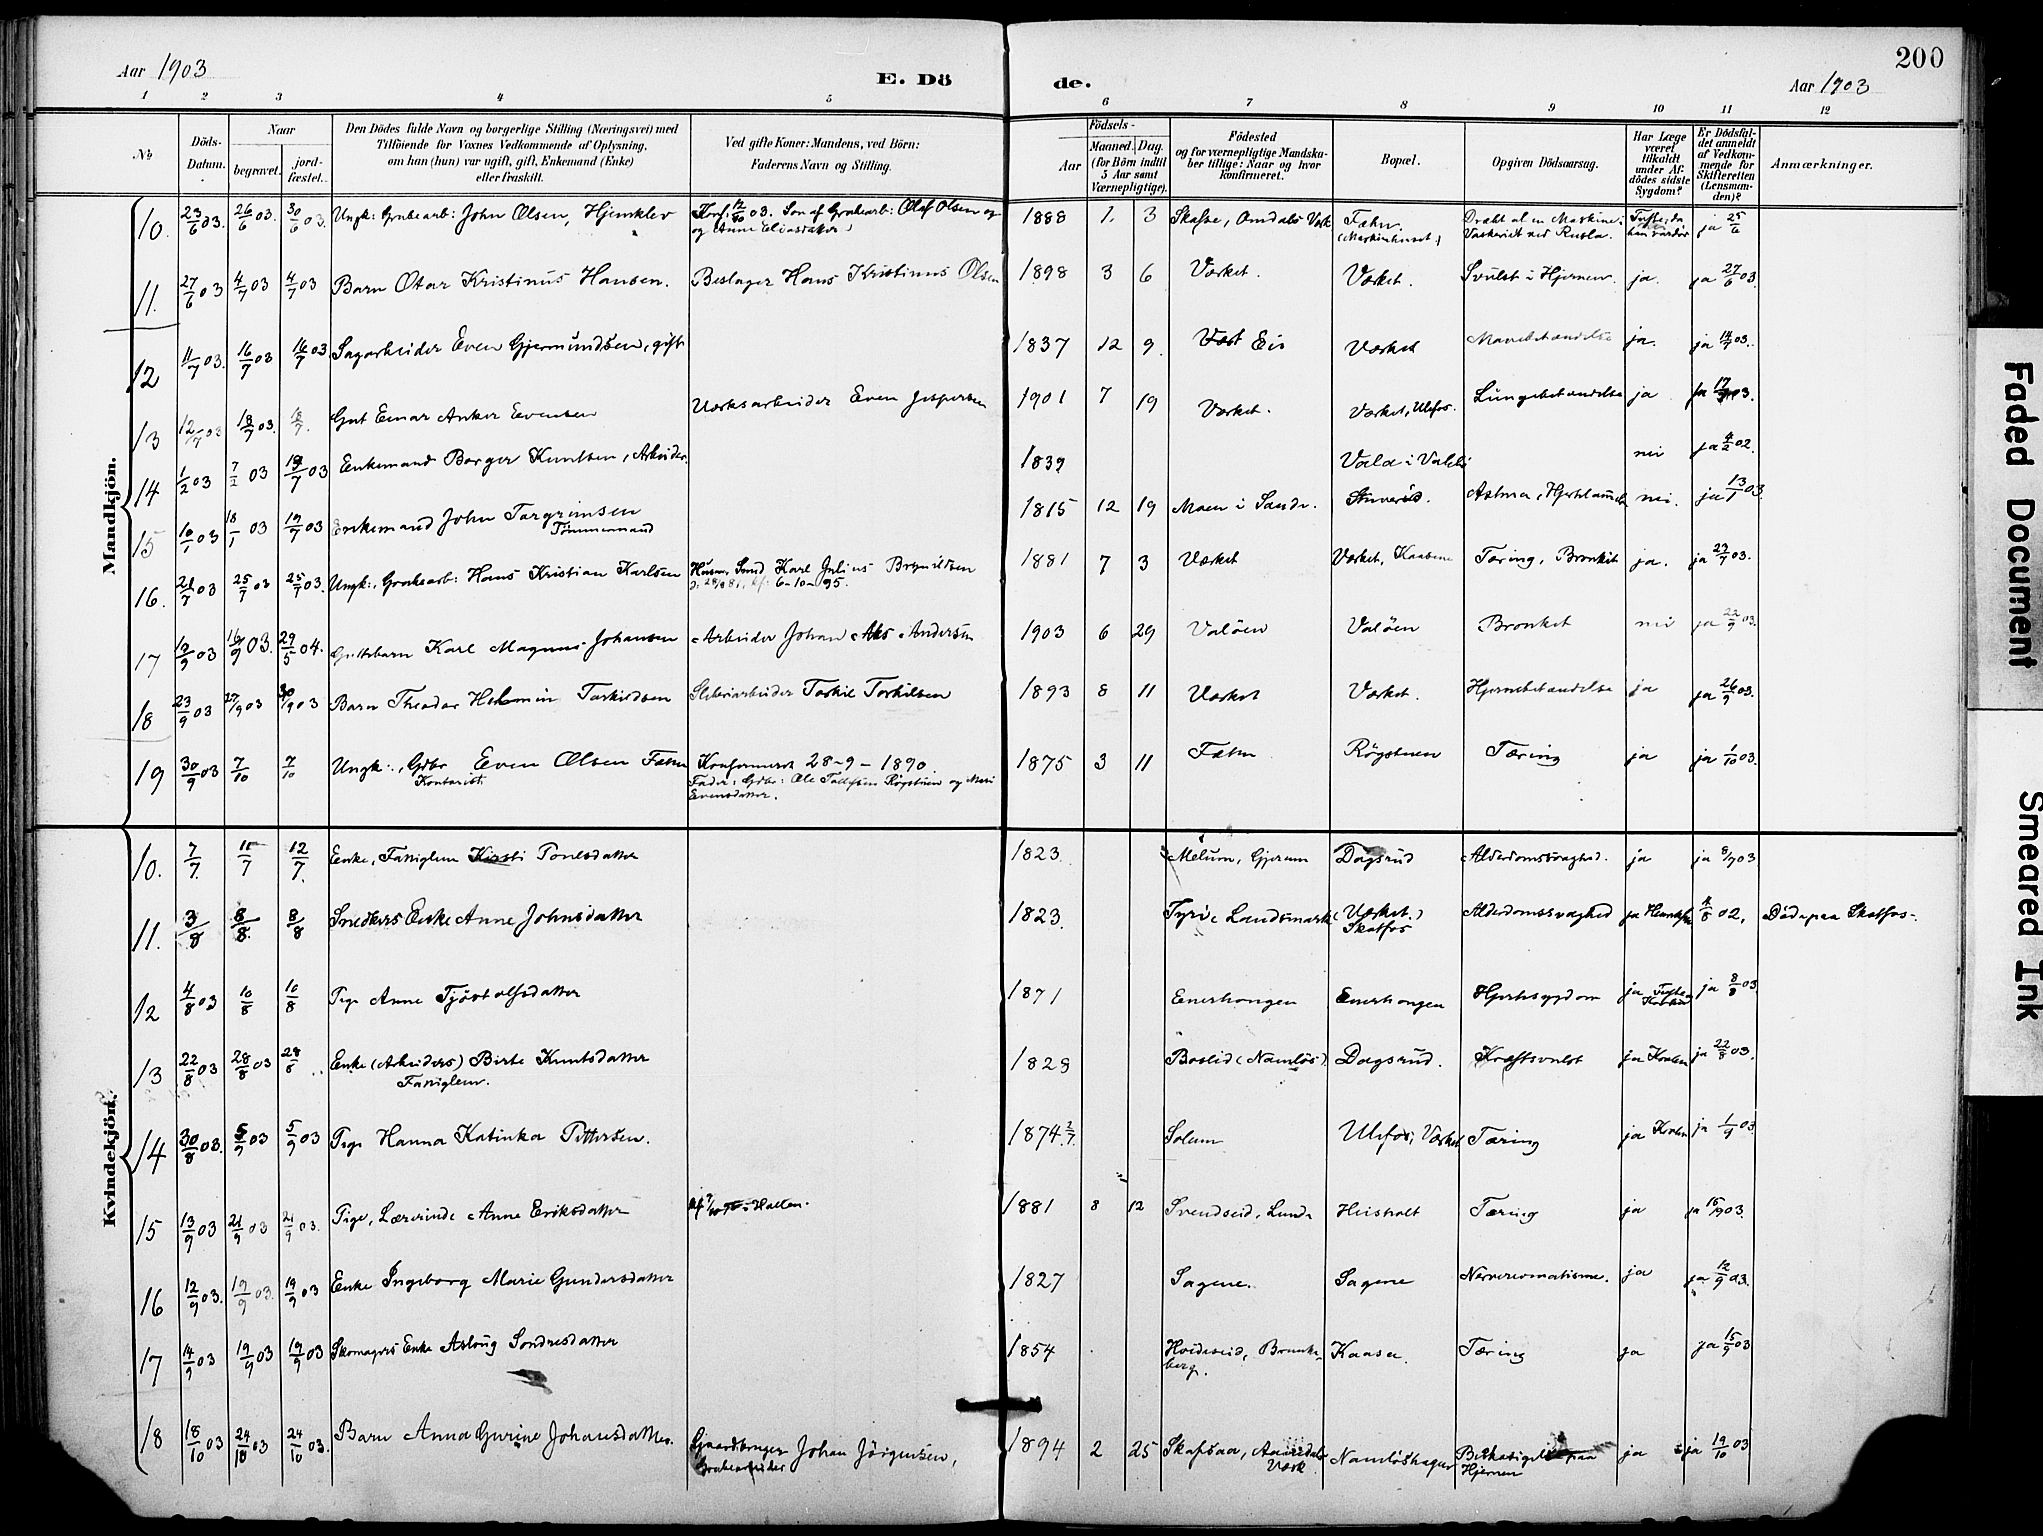 Aar 1903
E. Dö
de.
Aar 1903
200
1 2 3 4 5 6 7 8 9 10 11 12
No
Döds-Datum.
Naar
begravet.
jord-fæstet.
Den Dödes fulde Navn og borgerlige Stilling (Næringsvei) med
Tilföiende for Voxnes Vedkommende af Oplysning,
om han (hun) var ugift, gift, Enkemand (Enke)
eller fraskilt.
Ved gifte Koner: Mandens, ved Börn:
Faderens Navn og Stilling.
Födsels-
Aar
Maaned. Dag.
(for Börn indtil
5 Aar samt
Værnepligtige).
Födested
og for værnepligtige Mandska-
ber tillige: Naar og hvor
konfirmeret.
Bopæl.
Opgiven Dödsaarsag.
Har Læge
været
tilkaldt
under Af-
dödes sidste
Sygdom?
Er Dödsfal-
det anmeldt
af Vedkom-
mende for
Skifteretten
(Lensman-
den)?
Anmærkninger.
Mandkjön.
10. 23/6 03. 26/6 03. 30/6 03. Ungk: Grubearb: John Olsen, Hjemklev Konf. 12/10 03. Søn af Grubearb: Olaf Olsen og 1888 1. 3 Skafse, Omdals Værk Fæhn. ja 25/6
og Anne Eliasdatter)
11. 27/6 03 4/7 03 4/7 03 Barn Otar Kristinus Hansen. Beslager Hans Kristinus Olsen 1898 3 6 Værket. Værket. Svulst i Hjernen. ja. ja 27/6 03.
12 11/7 03. 16/7 03 16/7 03. Sagarbeider Even Gjermundsen, gift 1837 12 9. Eie Værket Mavebetændelse ja. ja 14/7 03.
13 12/7 03 18/7 03. 18/7. Gut Einar Anker Evensen Værksarbeider Even Jespersen 1901 7 19 Værket. Værket, Ulefos. Lungebetændelse ja ja 17/7 03.
14 1/2 03 7/2 03 19/7 03 Enkemand Borger Knutsen, Arbeider. 1839 Vala i Valebø nei ja 4/2 02.
15 10/1 03 18/1 03 19/7 03 Enkemand John Torgrimsen 1815 12 19 Moen i Sande. Astma, Hjertelammelse nei. ja 13/1 03
Tømmermand
16. 21/7 03 25/7 03 25/7 03. Ungk:, Grubearb: Hans Kristian Karlsen Husm. Smed Karl Julius Brynildsen 1881 7 3 Værket Værket, Kaasene Tæring, Bronkit ja. ja 23/7 03.
6-10-95.
17 13/9 03 16/9 03. 29/5 04. Guttebarn Karl Magnus Johansen Arbeider Johan Aks Andersen 1903 6 29 Valöen Valöen Bronkit nei ja 22/9 03.
18 23/9 03 27/9 03 30/9 03 Barn Theodor Helmin Torkildsen Sliberiarbeider Torkil Torkilsen 1893 8 11 Værket Værket. Hjernebetændelse ja ja 26/9 03.
19 30/9 03 7/10 7/10 Ungk:, Gdbr Even Olsen Fæhn Konfirmeret 28-9-1890. 1875 3 11 Fæhn Røgstuen Tæring ja ja 1/10 03.
Kontorist. Fader: Gdbr: Ole Tollefsen Røgstuen og Mari
Evensdatter.
Kvindekjön.
10. 7/7. 11/7 12/7. Enke, Fattiglem Kirsti Tonesdatter 1823. Melum, Gjerum Dagsrud Alderdomssvaghed. ja ja 8/7 03
11. 3/8 8/8. 8/8 Snedkers Enke Anne Johnsdatter 1823. Tyri, Landsmark (Værket.) Alderdomssvaghed ja 4/8 02, Döde paa Skotfos.
Skotfos
12 4/8 03 10/8 10/8 Pige Anne Tjöstolfsdatter 1871 Enerhougen Enerhougen Hjertesygdom ja ja 8/8 03.
13 22/8 03 28/8 03 28/8 Enke (Arbeiders) Birte Knutsdatter 1829 Boslid (Namløs) Dagsrud. Kræftsvulst ja ja 22/8 03.
Fattiglem.
14 30/8 03. 5/9 03 5/9 03 Pige Hanna Katinka Pettersen. 1874 2/7. Solum Ulefos, Værket Tæring ja ja 1/9 03
15 13/9 03 21/9 03 21/9 03. Pige, Lærerinde Anne Eriksdatter 1881 8 12 Svendseid, Lunde Heisholt Tæring ja ja 15/9 03.
16 12/9 03. 19/9 03. 19/9 03 Enke Ingeborg Marie Gundersdatter 1827 Sagene. Sagene ja ja 12/9 03.
17 14/9 03 19/9 03 19/9 03 Skomagers Enke Aslaug Sondresdatter 1854 Hvideseid, Brunke- Kaasa. Tæring ja ja 15/9 03
berg.
18 18/10 03 24/10 03 24/10 03. Barn Anna Gurine Johansdatter. Gaardbruger Johan Jörgensen, 1894 2 25 Skafsaa, Aamdals Namløshagen ja ja 19/10 03
Grubearbeider Værk Hjernen
Faded Document
Smeared Ink